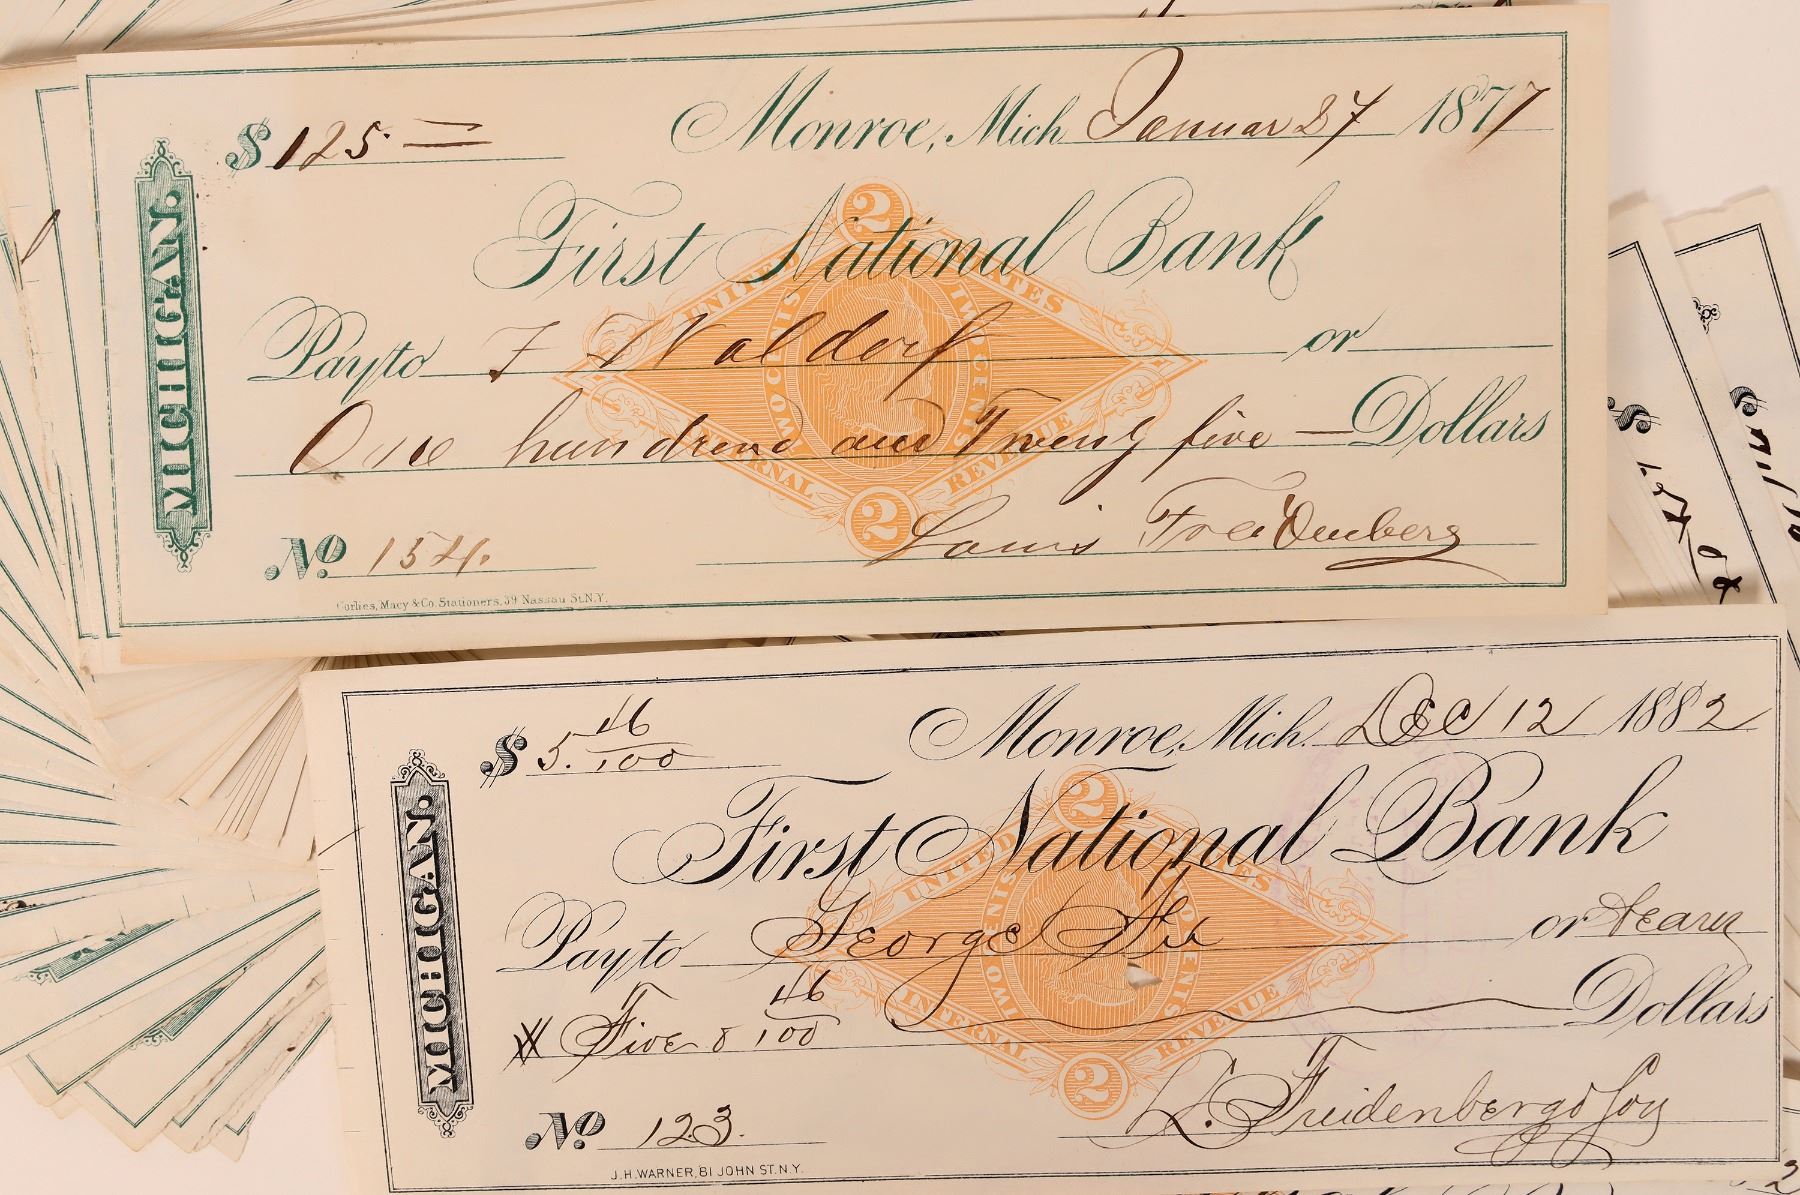 $ 125.=
Monroe, Mich. Januar 27 1877
First National Bank
MICHIGAN.
2
UNITED STATES
TWO CENTS TWO CENTS
INTERNAL REVENUE
2
Pay to F Waldorf or
One hundred and Twenty five — Dollars
No 154.
Louis Freidenberg
Corlies, Macy & Co. Stationers, 39 Nassau St. N.Y.
$ 5. 46/100
Monroe, Mich. Dec 12 1882
First National Bank
MICHIGAN.
2
UNITED STATES
TWO CENTS TWO CENTS
INTERNAL REVENUE
2
Pay to George or Bearer
Five & 46/100 Dollars
No 123.
L. Freidenberg & Son
J. H. WARNER, 81 JOHN ST. N.Y.